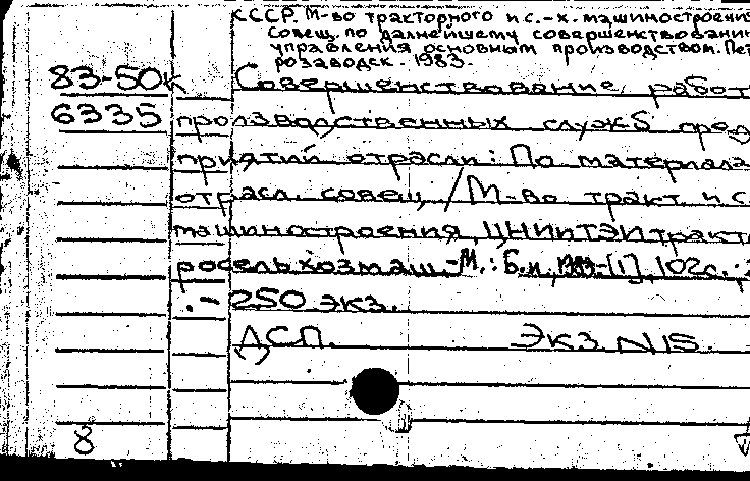 СССР. М-во тракторного и с.-х. машиностроени
Совещ. по дальнейшему совершенствовани
управления основным производством. Пет
розаводск. 1983.
83-50к Совершенствование работ
6335 производственных служб пред
приятий отрасли: По материала
отрасл. совещ. / М-во тракт. и с
машиностроения, ЦНИИТЭИтракт
росельхозмаш. - М.: Б.и., 1983 - [1], 102с.;
. - 250 экз.
ДСП. Экз. N15.
8